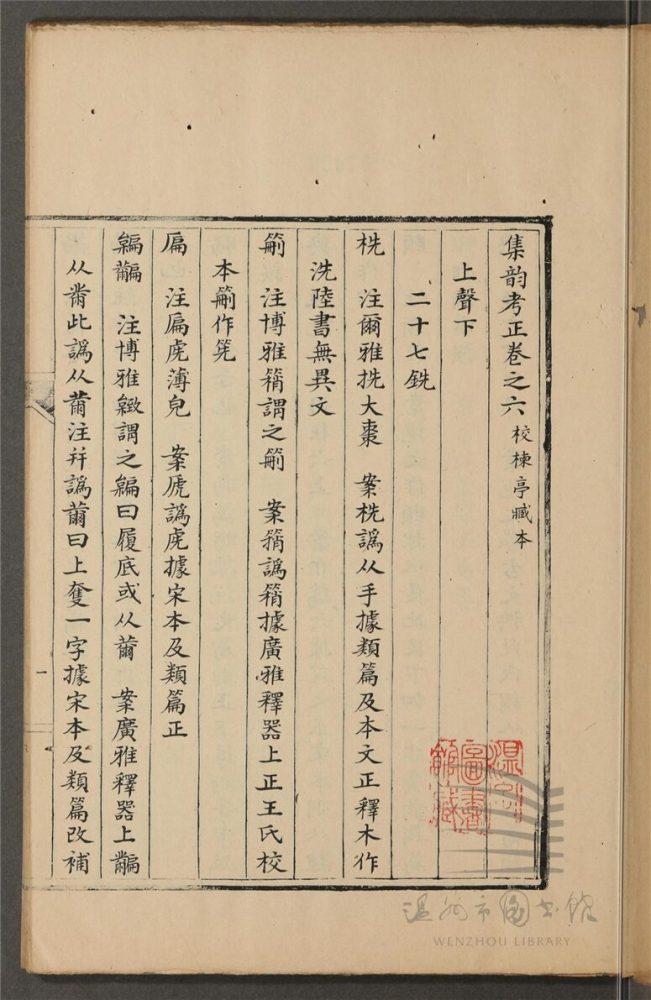 集韵考正卷之六 校楝亭臧本
上聲下
二十七銑
桄 注爾雅挩大棗 案桄譌从手據類篇及本文正釋木作
洗陸書無異文
箾 注博雅箱謂之箾 案箱譌箱據廣雅釋器上正王氏校
本箾作筅
扁 注扁虒薄皃 案虒譌虎據宋本及類篇正
注博雅緻謂之 曰履底或从 案廣雅釋器上
从黹此譌从 注并譌 曰上奪一字據宋本及類篇改補
一
温州市圖書館
WENZHOU LIBRARY